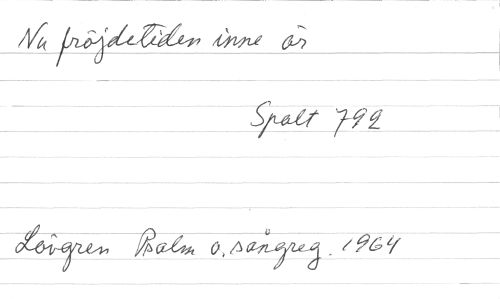 Nu fröjdetiden inne är
Spalt 792
Lövgren Psalm o. sångreg. 1964